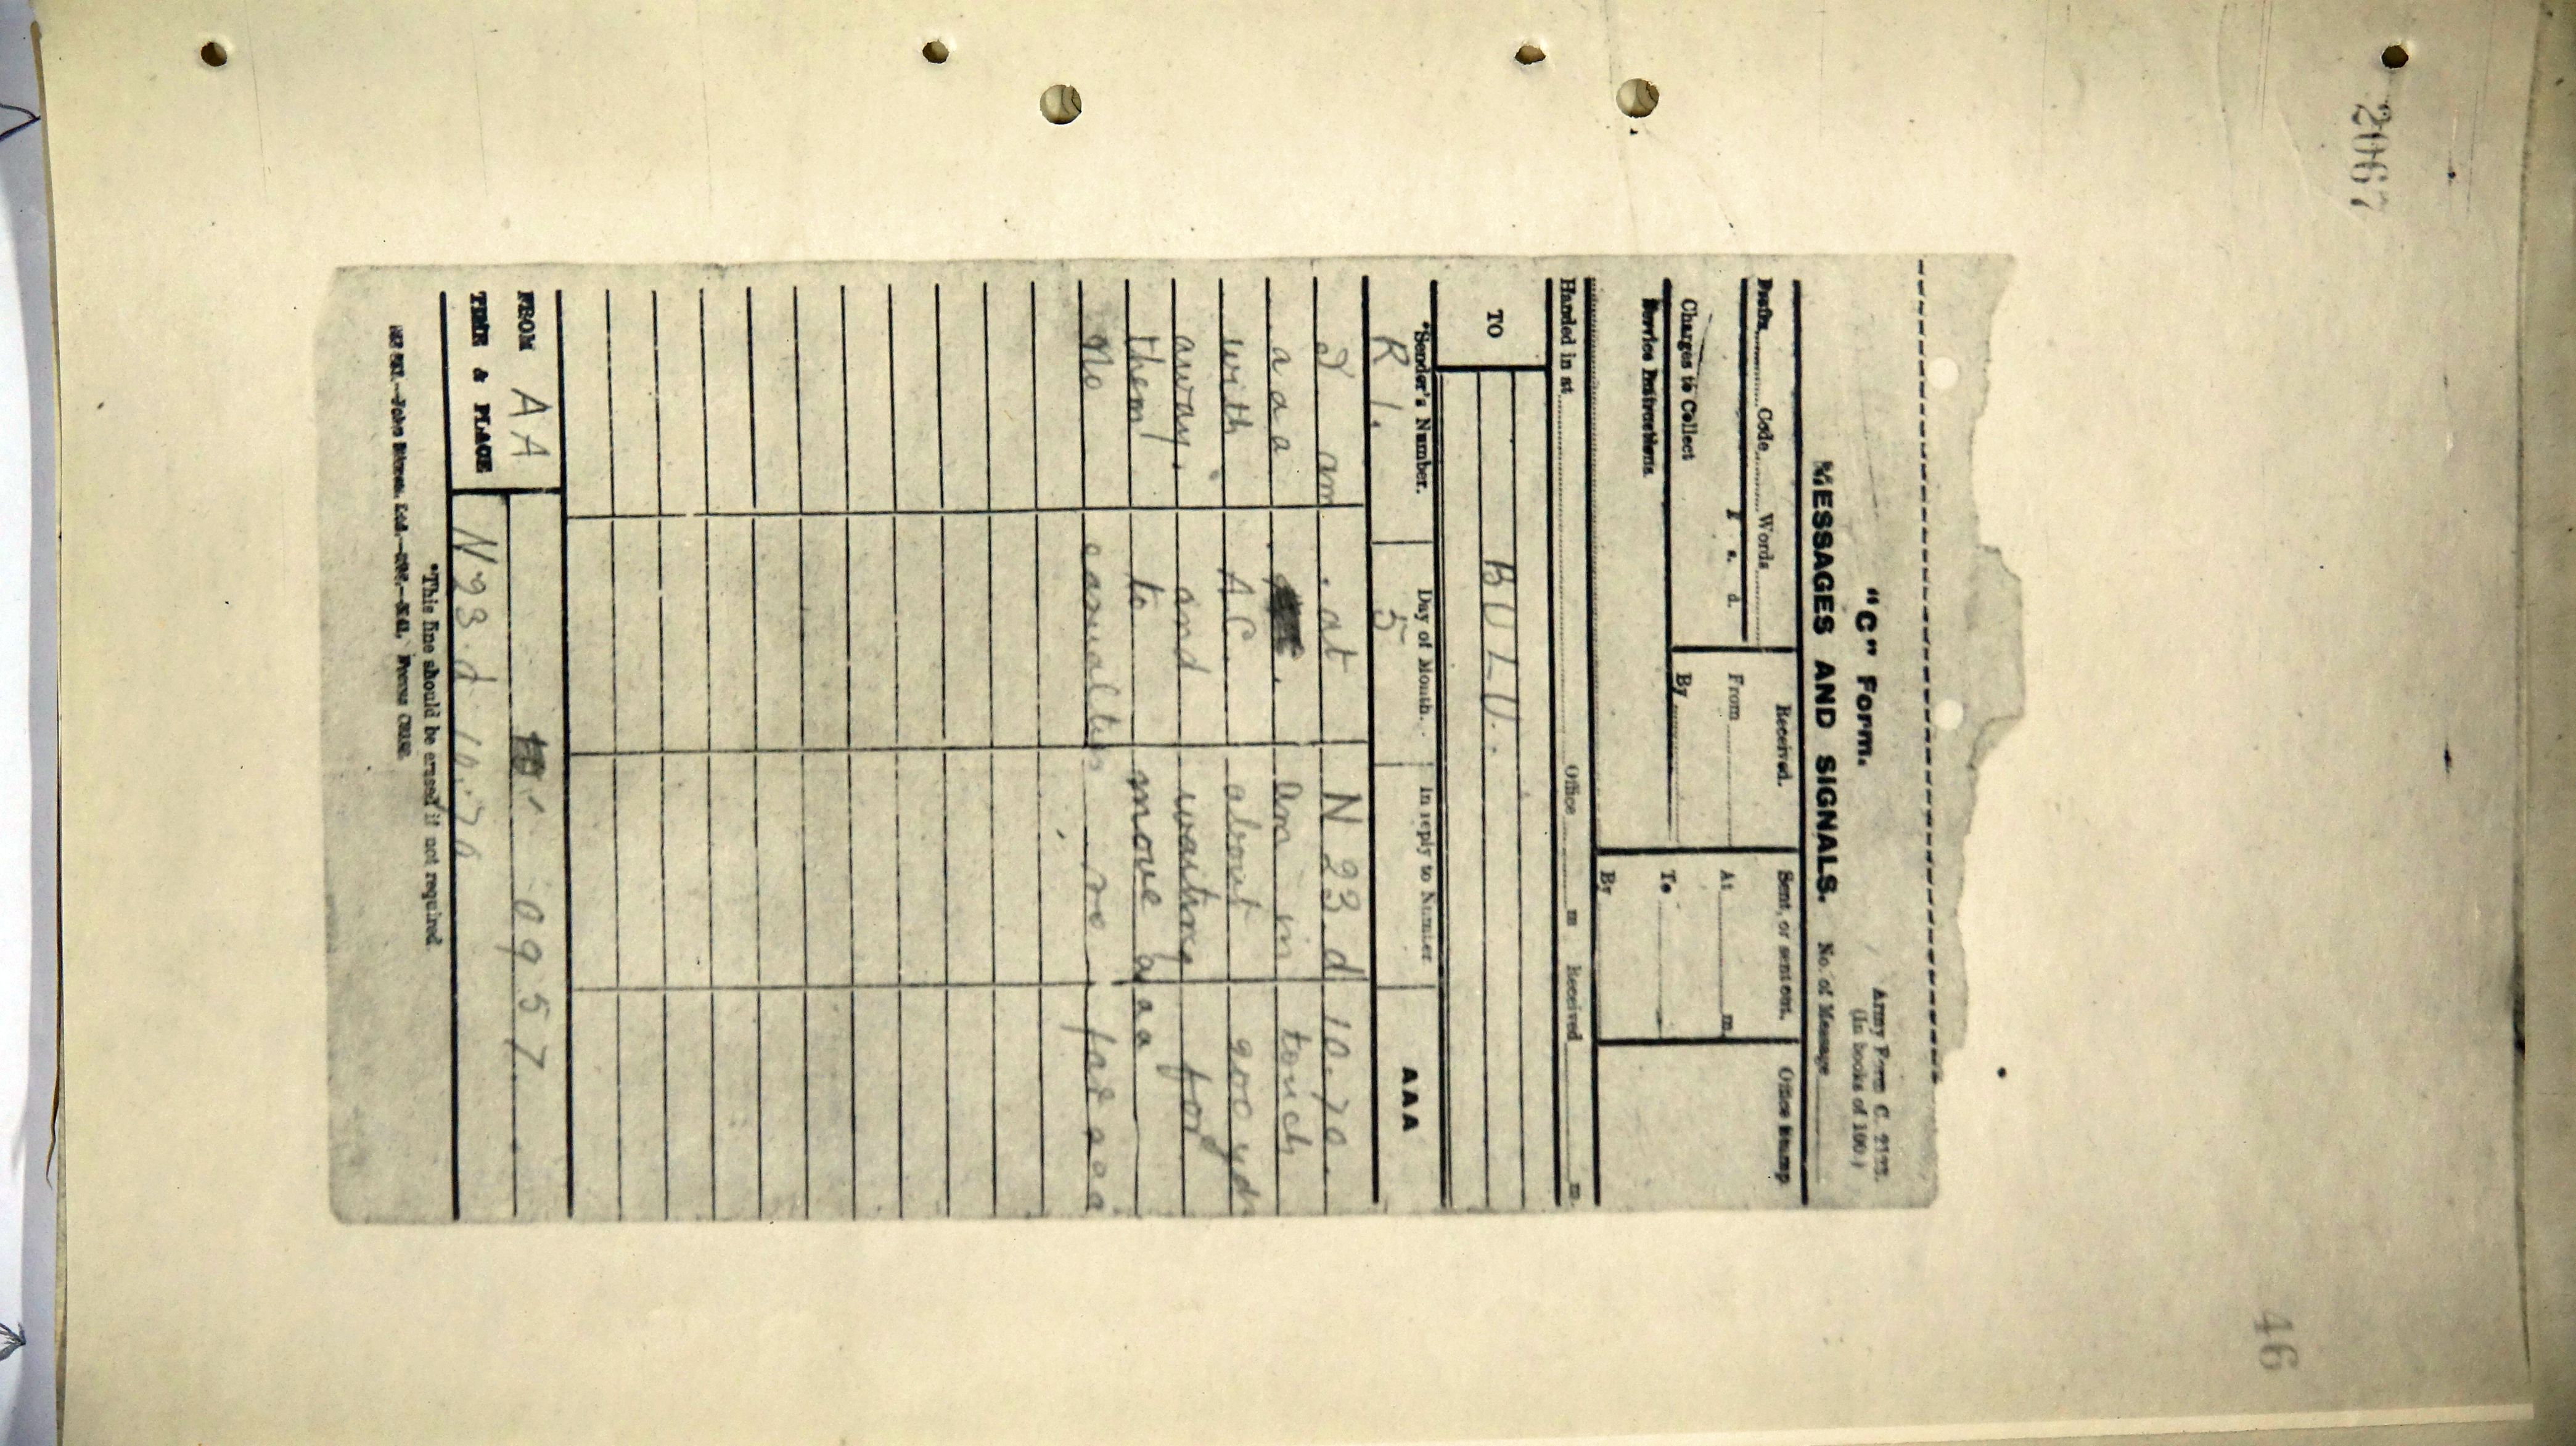 2067
46
"C" Form.
Army Form C. 2123.
(In books of 100.)
MESSAGES AND SIGNALS. No. of Message
Prefix Code Words
Received.
Sent, or sent out.
Office Stamp
£ s. d.
From
At m.
Charges to Collect
By
To
Service Instructions.
By
Handed in at Office m Received m.
TO
BULU.
*Sender's Number. Day of Month. In reply to Number AAA
R 1. 5
I am at N 23 d 10.70.
aaa Am in touch
with AC about 900 yds
away. and waiting for
them to move aaa
No casualties no far aaa
FROM AA 0957.
TIME & PLACE N 23 d 10.70
*This line should be erased if not required.